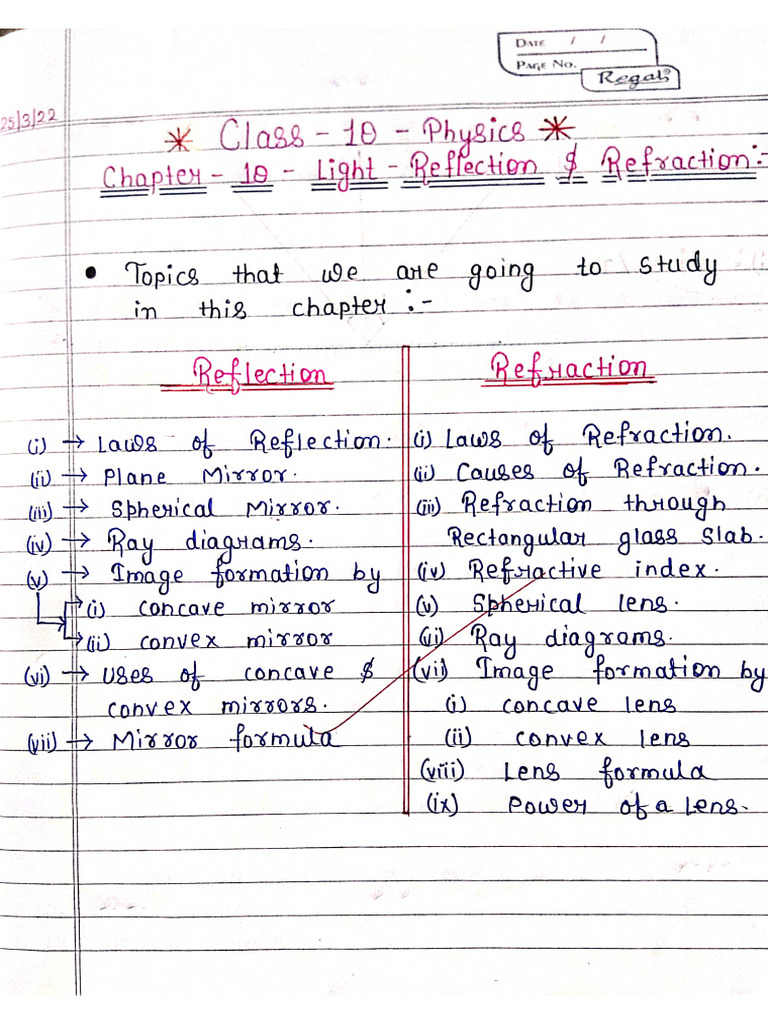 DATE / /
PAGE No.
Regal
25/3/22
* Class - 10 - Physics *
Chapter - 10 - Light - Reflection & Refraction :-
• Topics that we are going to study
in this chapter :-
Reflection
(i) → Laws of Reflection.
(ii) → Plane Mirror.
(iii) → Spherical Mirror.
(iv) → Ray diagrams.
(v) → Image formation by
→ (i) concave mirror
→ (ii) convex mirror
(vi) → Uses of concave &
convex mirrors.
(vii) → Mirror formula
Refraction
(i) Laws of Refraction.
(ii) Causes of Refraction.
(iii) Refraction through
Rectangular glass slab.
(iv) Refractive index.
(v) Spherical lens.
(vi) Ray diagrams.
(vii) Image formation by
(i) concave lens
(ii) convex lens
(viii) Lens formula
(ix) Power of a Lens.